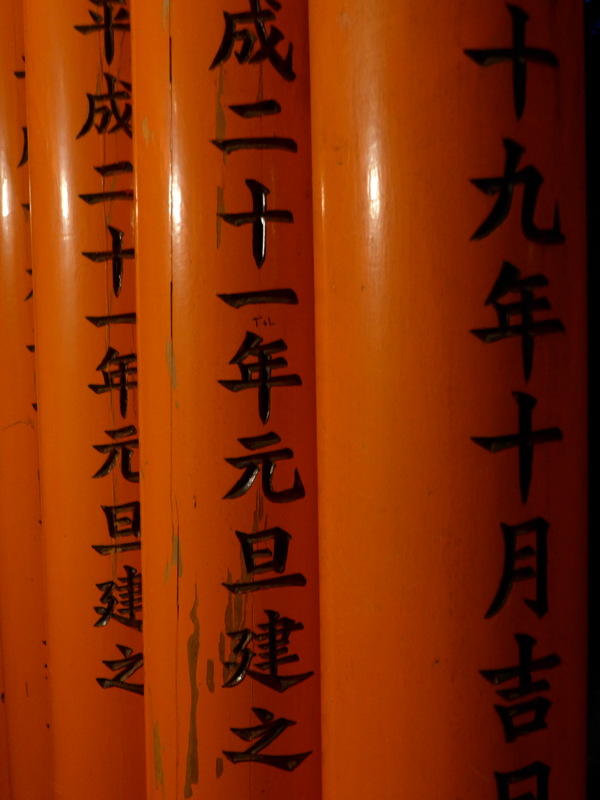 十九年十月吉日
成二十一年元旦建之
平成二十一年元旦建之